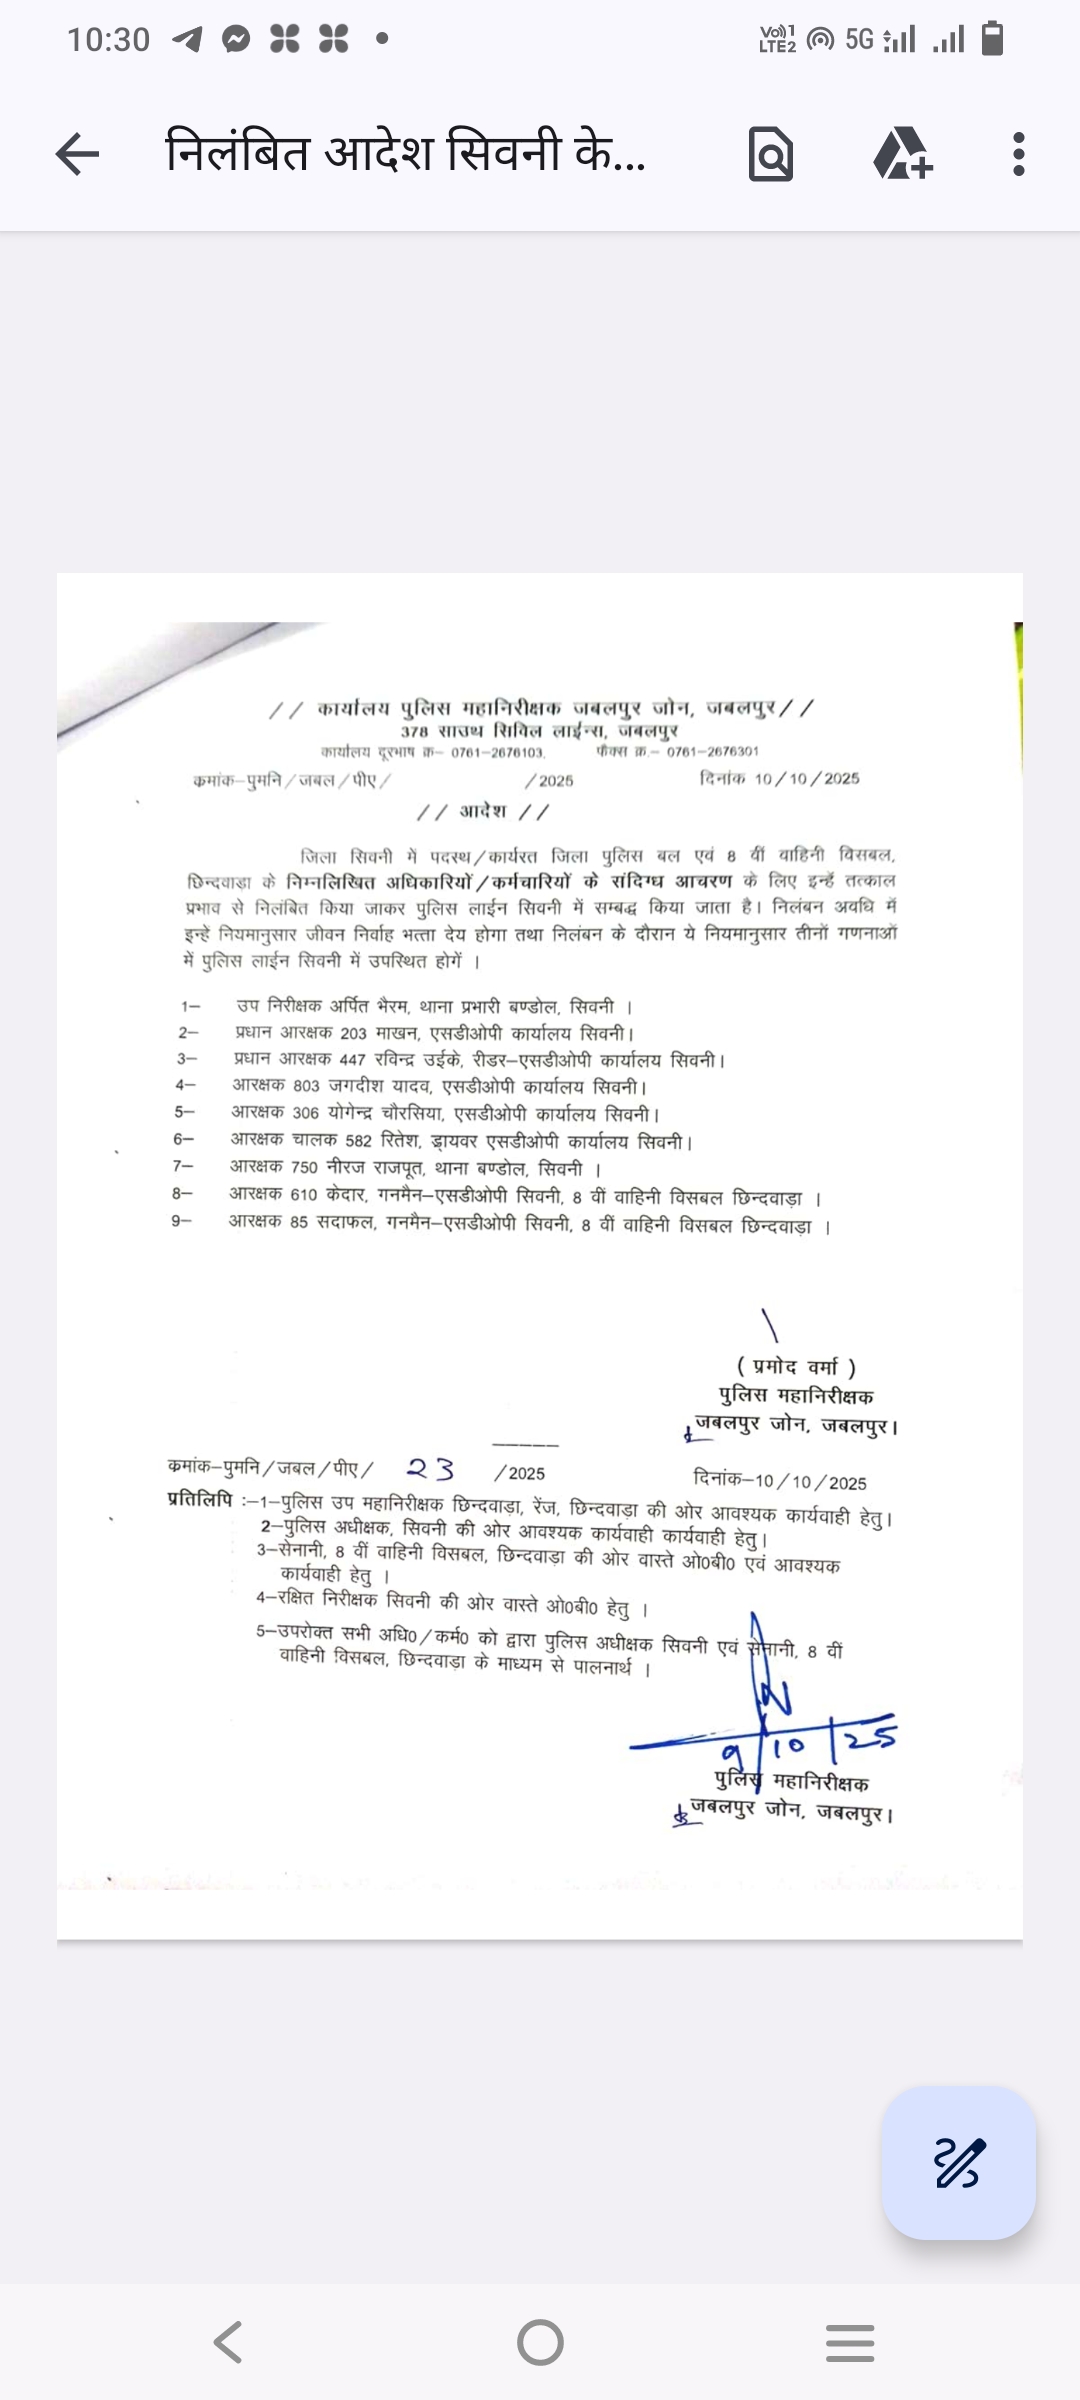 10:30
Vo))1 LTE2 5G
निलंबित आदेश सिवनी के...
// कार्यालय पुलिस महानिरीक्षक जबलपुर जोन, जबलपुर//
378 साउथ सिविल लाईन्स, जबलपुर
कार्यालय दूरभाष क्र– 0761–2676103, फैक्स क्र.– 0761–2676301
कमांक–पुमनि/जबल/पीए/ /2025 दिनांक 10/10/2025
// आदेश //
जिला सिवनी में पदस्थ/कार्यरत जिला पुलिस बल एवं 8 वीं वाहिनी विसबल,
छिन्दवाड़ा के निम्नलिखित अधिकारियों/कर्मचारियों के संदिग्ध आचरण के लिए इन्हें तत्काल
प्रभाव से निलंबित किया जाकर पुलिस लाईन सिवनी में सम्बद्ध किया जाता है। निलंबन अवधि में
इन्हें नियमानुसार जीवन निर्वाह भत्ता देय होगा तथा निलंबन के दौरान ये नियमानुसार तीनों गणनाओं
में पुलिस लाईन सिवनी में उपस्थित होगें ।
1– उप निरीक्षक अर्पित भैरम, थाना प्रभारी बण्डोल, सिवनी ।
2– प्रधान आरक्षक 203 माखन, एसडीओपी कार्यालय सिवनी।
3– प्रधान आरक्षक 447 रविन्द्र उईके, रीडर–एसडीओपी कार्यालय सिवनी।
4– आरक्षक 803 जगदीश यादव, एसडीओपी कार्यालय सिवनी।
5– आरक्षक 306 योगेन्द्र चौरसिया, एसडीओपी कार्यालय सिवनी।
6– आरक्षक चालक 582 रितेश, ड्रायवर एसडीओपी कार्यालय सिवनी।
7– आरक्षक 750 नीरज राजपूत, थाना बण्डोल, सिवनी ।
8– आरक्षक 610 केदार, गनमैन–एसडीओपी सिवनी, 8 वीं वाहिनी विसबल छिन्दवाड़ा ।
9– आरक्षक 85 सदाफल, गनमैन–एसडीओपी सिवनी, 8 वीं वाहिनी विसबल छिन्दवाड़ा ।
( प्रमोद वर्मा )
पुलिस महानिरीक्षक
जबलपुर जोन, जबलपुर।
कमांक–पुमनि/जबल/पीए/ 23 /2025 दिनांक–10/10/2025
प्रतिलिपि :–1–पुलिस उप महानिरीक्षक छिन्दवाड़ा, रेंज, छिन्दवाड़ा की ओर आवश्यक कार्यवाही हेतु।
2–पुलिस अधीक्षक, सिवनी की ओर आवश्यक कार्यवाही कार्यवाही हेतु।
3–सेनानी, 8 वीं वाहिनी विसबल, छिन्दवाड़ा की ओर वास्ते ओ0बी0 एवं आवश्यक
कार्यवाही हेतु ।
4–रक्षित निरीक्षक सिवनी की ओर वास्ते ओ0बी0 हेतु ।
5–उपरोक्त सभी अधि0/कर्म0 को द्वारा पुलिस अधीक्षक सिवनी एवं सेनानी, 8 वीं
वाहिनी विसबल, छिन्दवाड़ा के माध्यम से पालनार्थ ।
9/10/25
पुलिस महानिरीक्षक
जबलपुर जोन, जबलपुर।